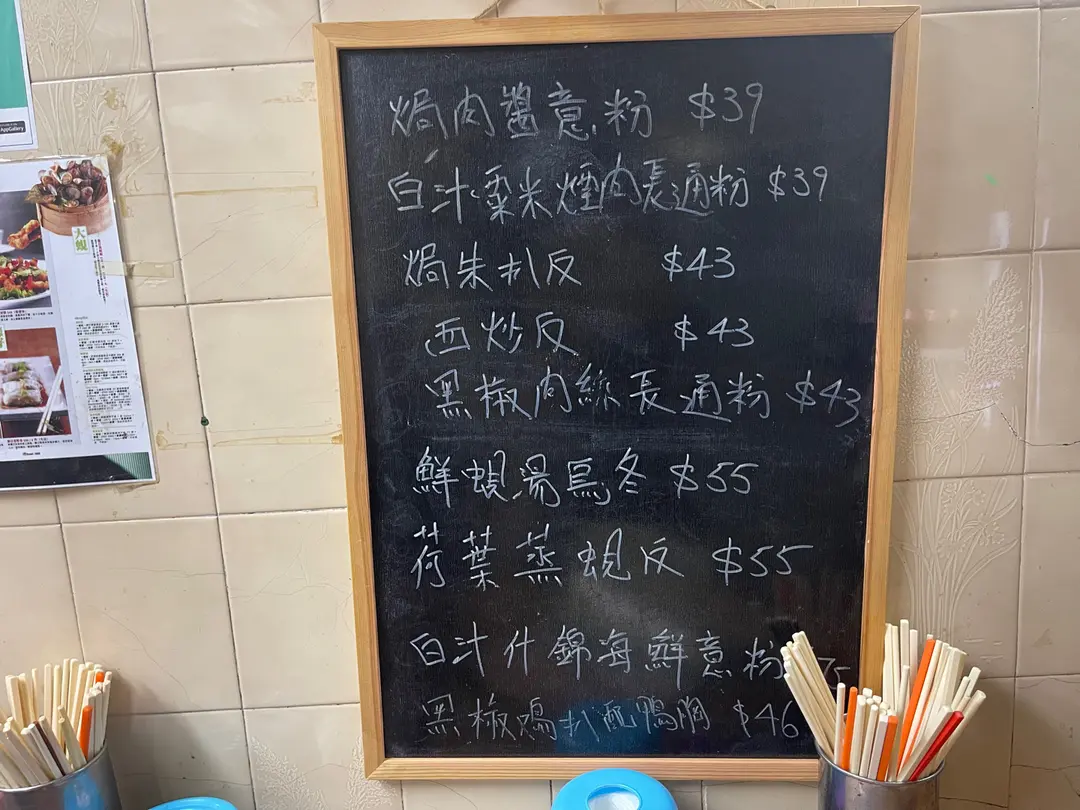 焗肉醬意粉 $39
白汁粟米煙肉長通粉 $39
焗朱扒反 $43
西炒反 $43
黑椒肉絲長通粉 $43
鮮蜆湯烏冬 $55
荷葉蒸蜆反 $55
白汁什錦海鮮意粉
黑椒鳮扒配鴨胸 $46
AppGallery
大蜆